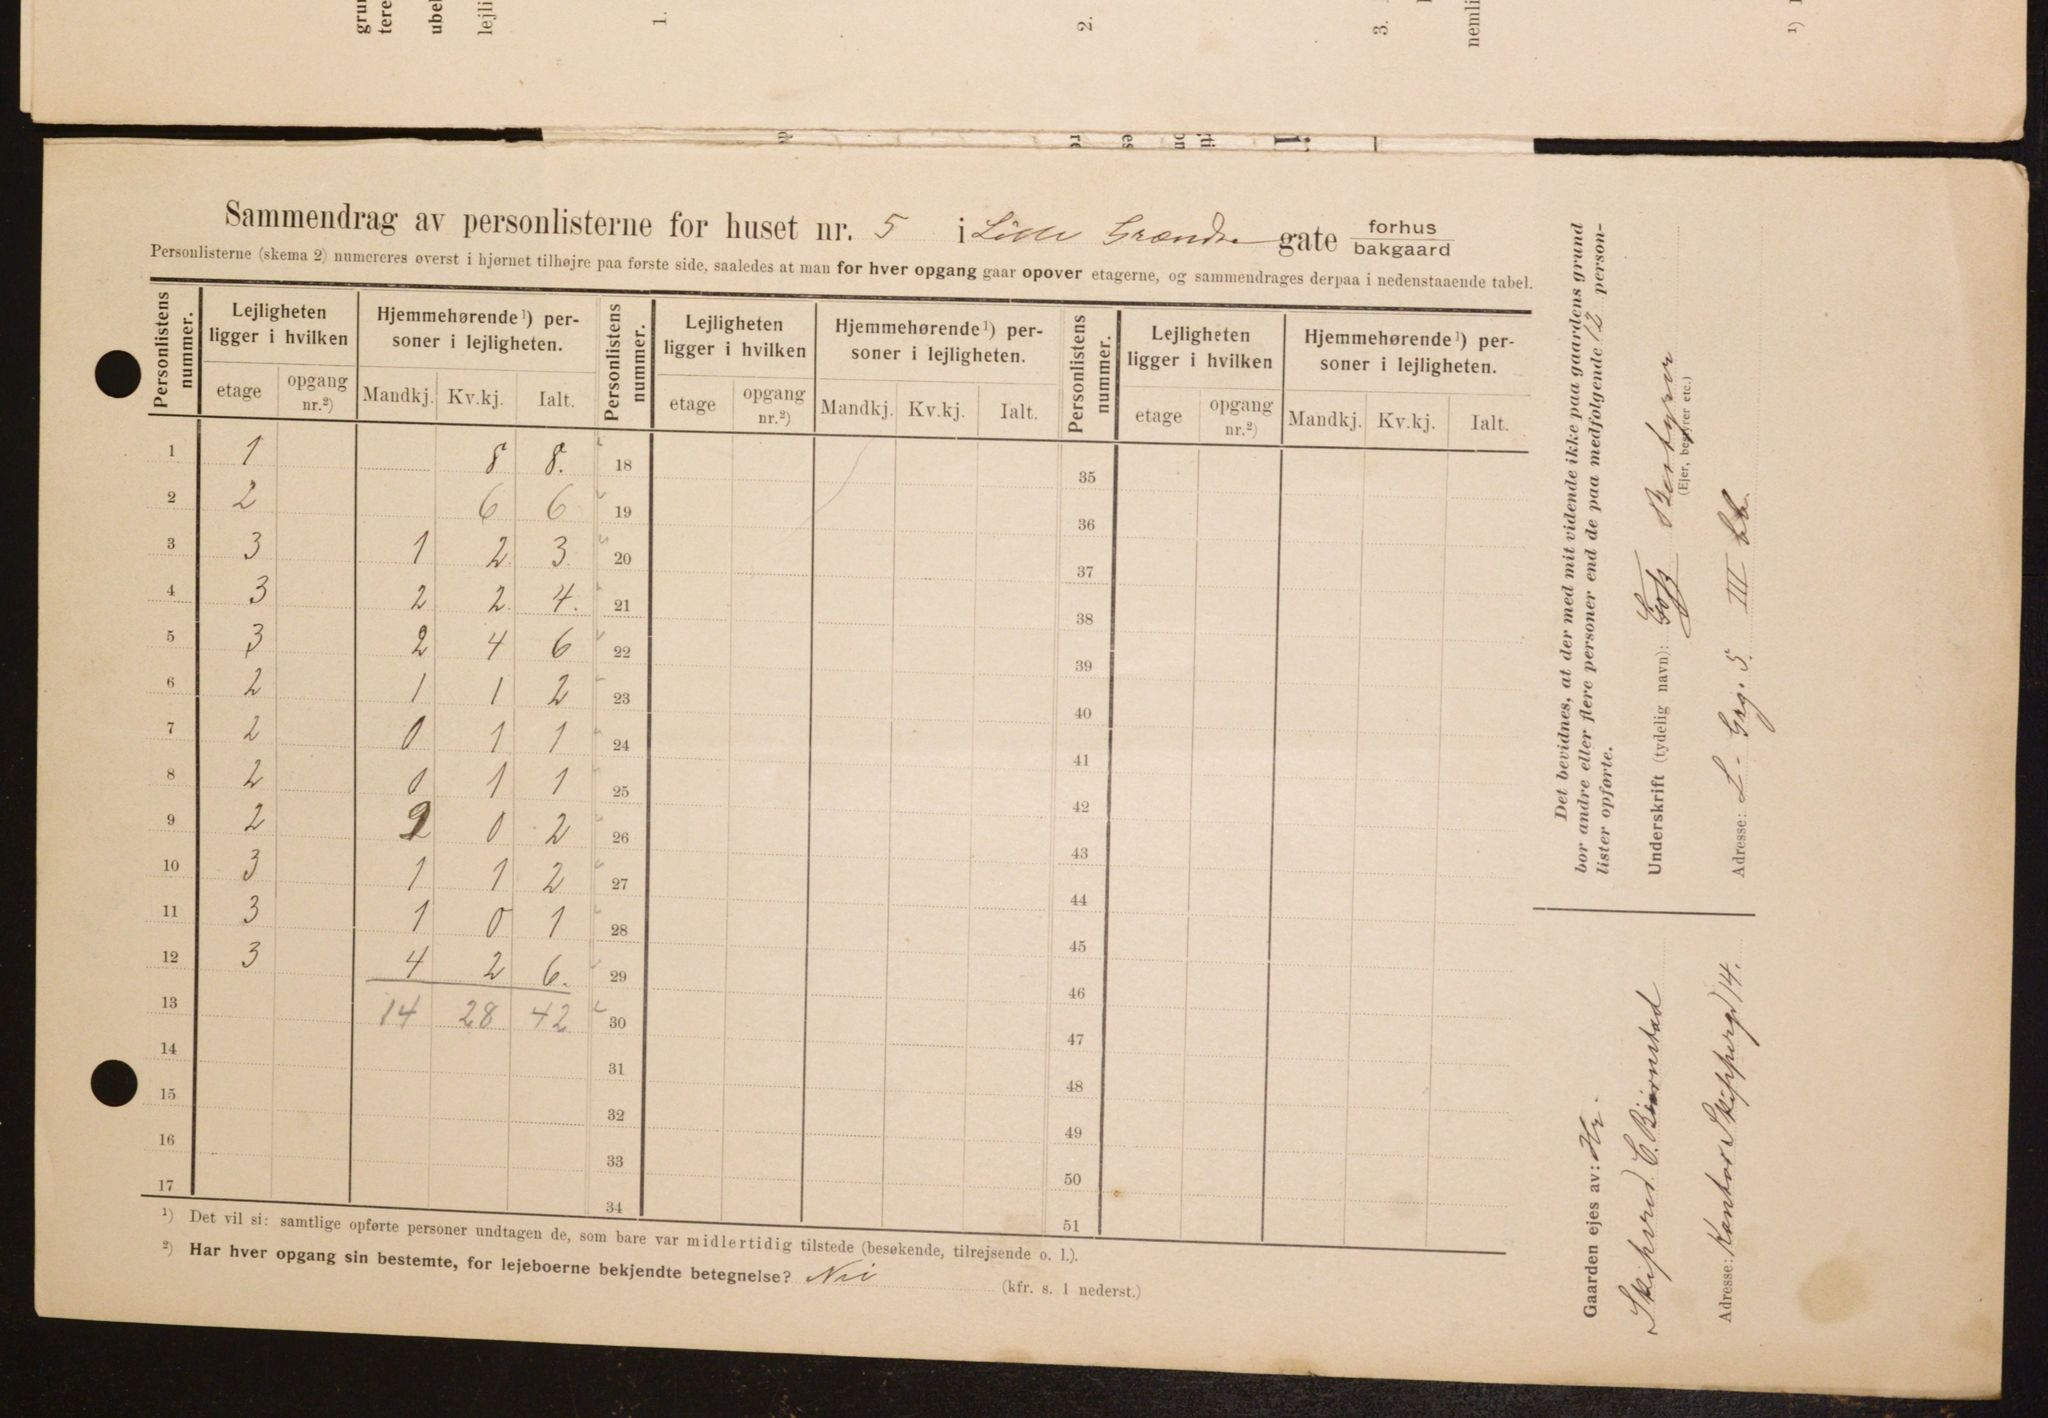 grun
tere
ubel
lejli
1.
2.
3.
nemli
¹)
Sammendrag av personlisterne for huset nr. 5 i Lille Grændse gate forhus / bakgaard
Personlisterne (skema 2) numereres øverst i hjørnet tilhøjre paa første side, saaledes at man for hver opgang gaar opover etagerne, og sammendrages derpaa i nedenstaaende tabel.
Personlistens nummer. Lejligheten ligger i hvilken Hjemmehørende¹) personer i lejligheten. Personlistens nummer. Lejligheten ligger i hvilken Hjemmehørende¹) personer i lejligheten. Personlistens nummer. Lejligheten ligger i hvilken Hjemmehørende¹) personer i lejligheten.
etage opgang nr.²) Mandkj. Kv.kj. Ialt. etage opgang nr.²) Mandkj. Kv.kj. Ialt. etage opgang nr.²) Mandkj. Kv.kj. Ialt.
1 1 8 8. 18 35
2 2 6 6 19 36
3 3 1 2 3 20 37
4 3 2 2 4. 21 38
5 3 2 4 6 22 39
6 2 1 1 2 23 40
7 2 0 1 1 24 41
8 2 0 1 1 25 42
9 2 2 0 2 26 43
10 3 1 1 2 27 44
11 3 1 0 1 28 45
12 3 4 2 6. 29 46
13 14 28 42 30 47
14 31 48
15 32 49
16 33 50
17 34 51
¹) Det vil si: samtlige opførte personer undtagen de, som bare var midlertidig tilstede (besøkende, tilrejsende o. l.).
²) Har hver opgang sin bestemte, for lejeboerne bekjendte betegnelse? Nei (kfr. s. 1 nederst.)
Det bevidnes, at der med mit vidende ikke paa gaardens grund
bor andre eller flere personer end de paa medfølgende 12 person-
lister opførte.
Underskrift (tydelig navn): Bestyrer
(Ejer, bestyrer etc.)
Adresse: L. Grg. 5. III
Gaarden ejes av: Hr.
Skipsred. C. Bjørnstad
Adresse: Kontor Skippergd 14.